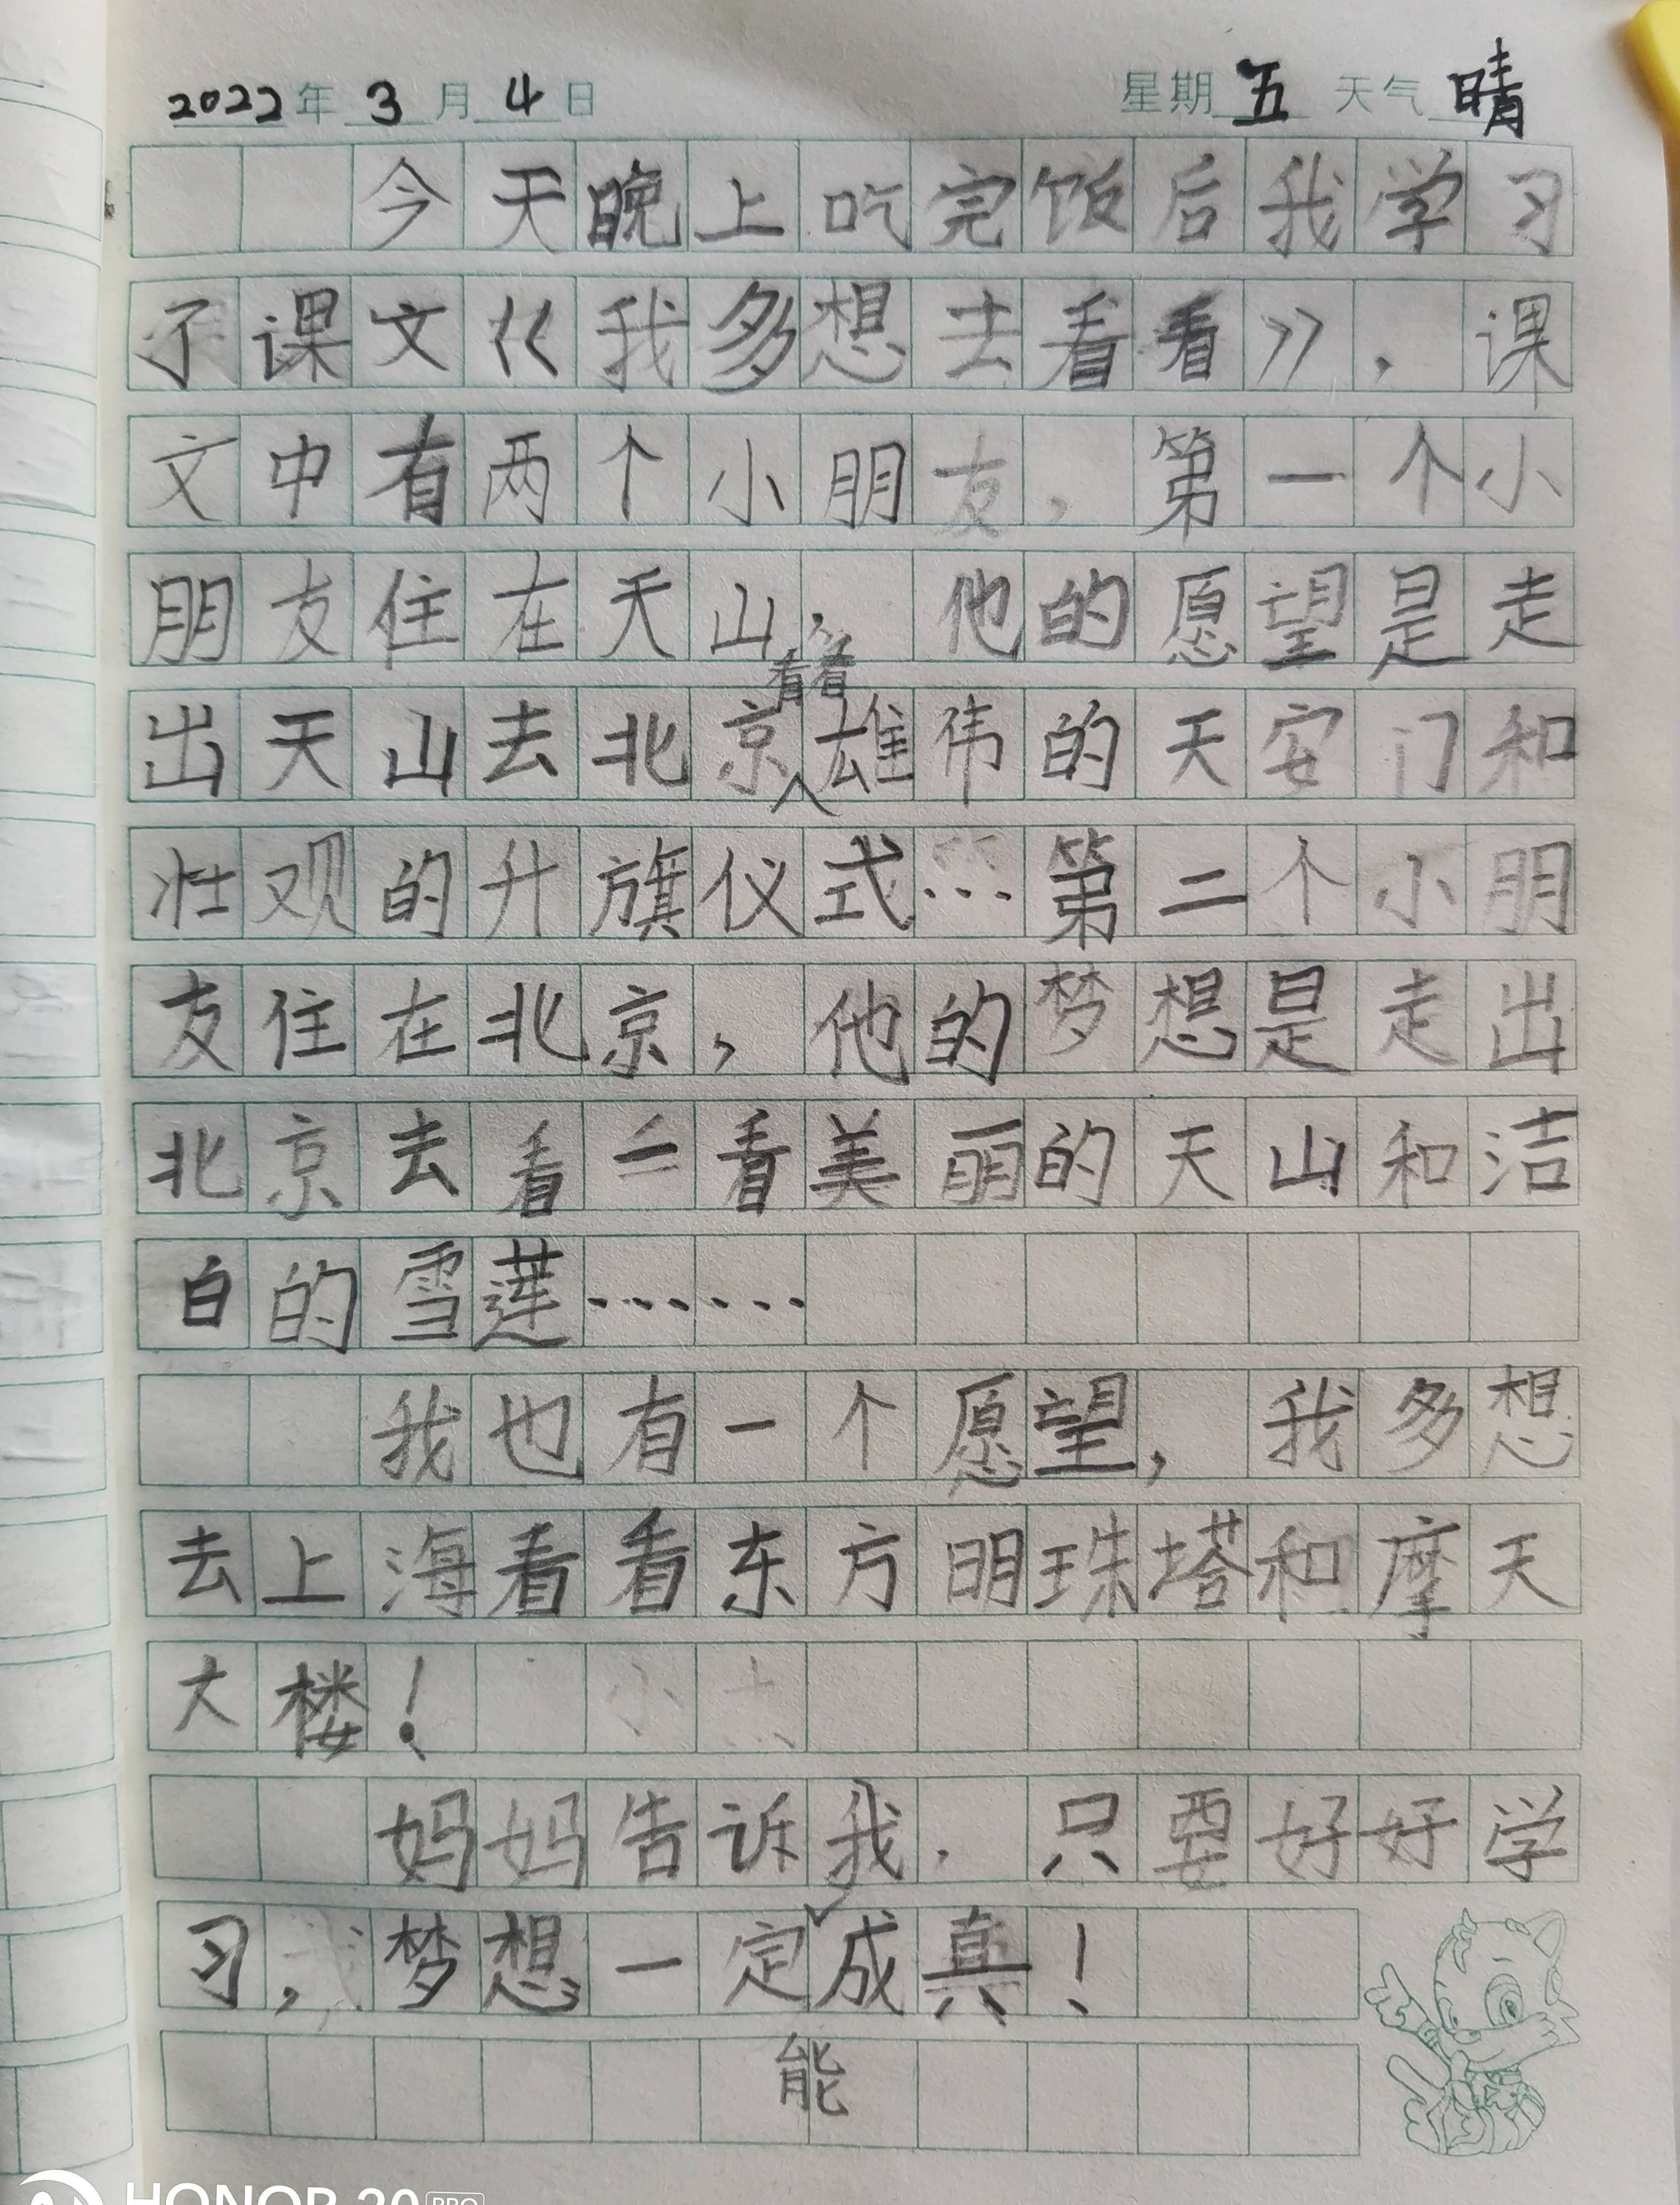 2022年 3月 4日 星期五 天气晴
今天晚上吃完饭后我学习
了课文《我多想去看看》，课
文中有两个小朋友，第一个小
朋友住在天山，他的愿望是走
看看
出天山去北京雄伟的天安门和
壮观的升旗仪式…第二个小朋
友住在北京，他的梦想是走出
北京去看一看美丽的天山和洁
白的雪莲……
我也有一个愿望，我多想
去上海看看东方明珠塔和摩天
大楼！
妈妈告诉我，只要好好学
习，梦想一定成真！
能
HONOR 20 PRO